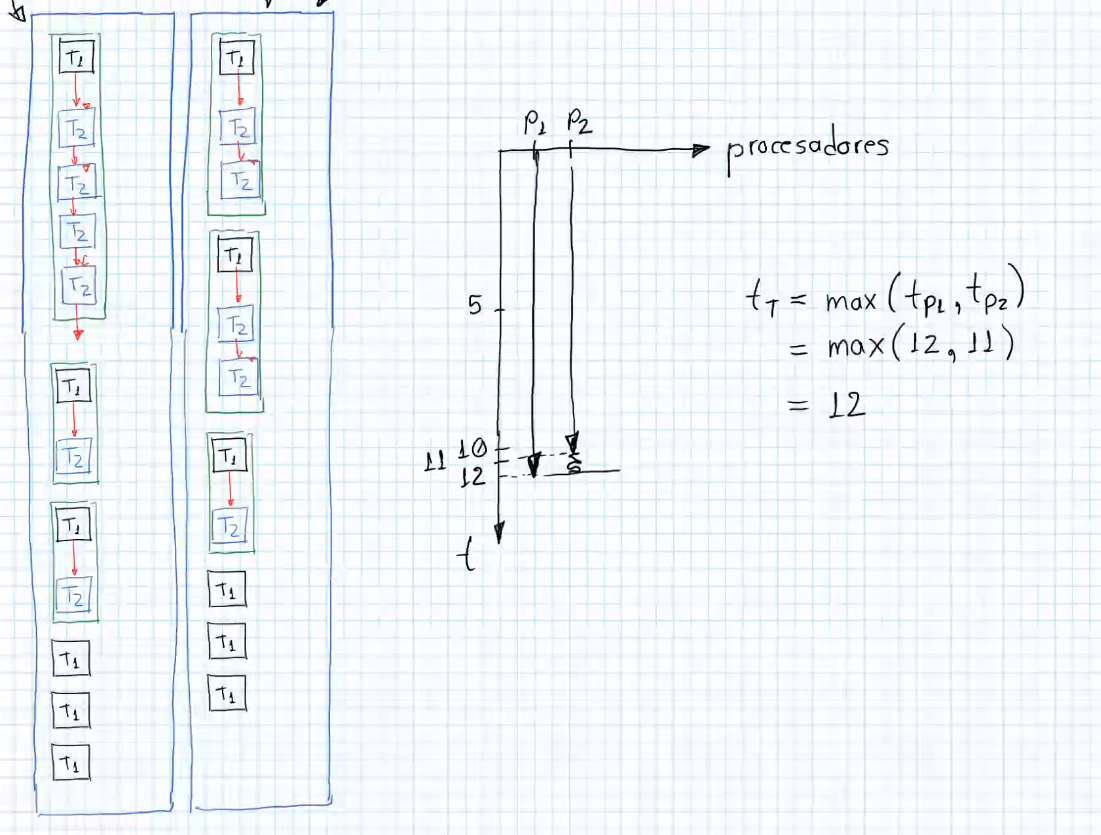 T1
T2
T2
T2
T2
T1
T2
T1
T2
T1
T1
T1
T1
T2
T2
T1
T2
T2
T1
T2
T1
T1
T1
P1 P2
procesadores
5
10
11
12
t
tT = max(tP1, tP2)
= max(12, 11)
= 12